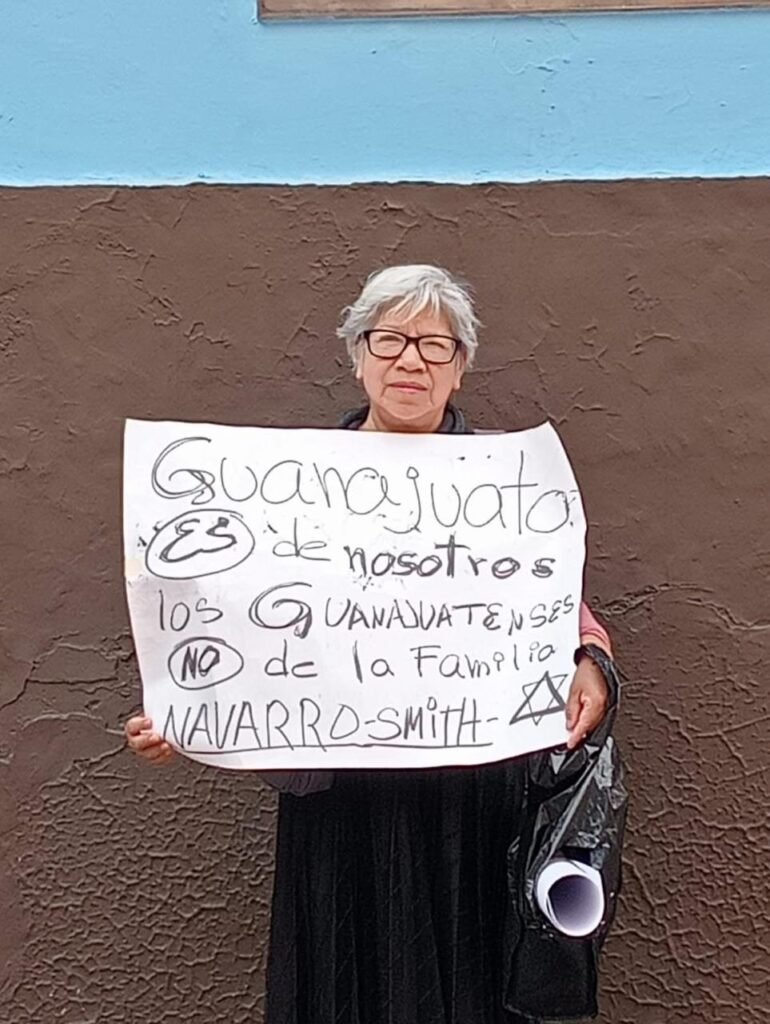 Guanajuato
ES de nosotros
los GUANAJUATENSES
NO de la Familia
NAVARRO-SMITH-